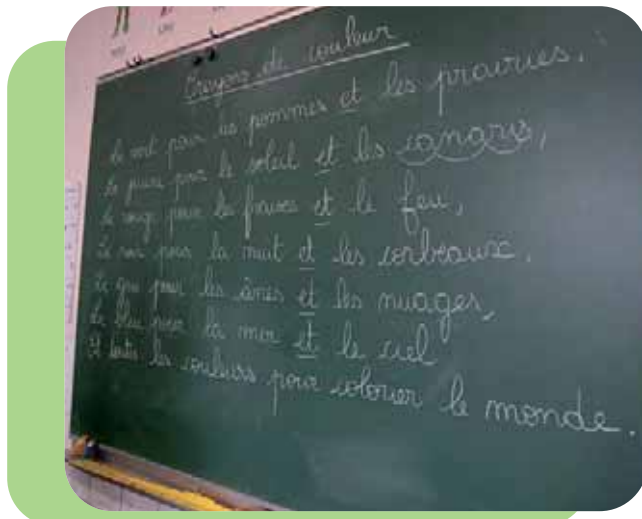 Crayons de couleur
Le vert pour les pommes et les prairies,
Le jaune pour le soleil et les canaris,
Le rouge pour les fraises et le feu,
Le noir pour la nuit et les corbeaux,
Le gris pour les ânes et les nuages,
Le bleu pour la mer et le ciel
Et toutes les couleurs pour colorier le monde.